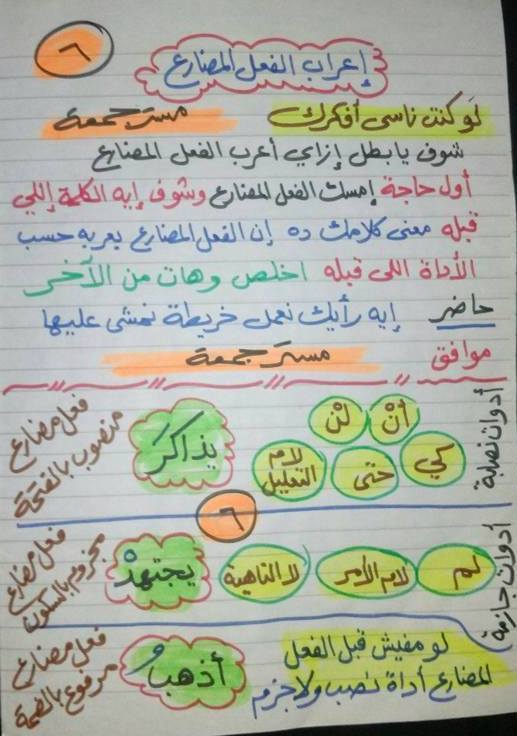 ٦
إعراب الفعل المضارع
لو كنت ناسى أفكرك مستر جمعة
شوف يا بطل إزاي أعرب الفعل المضارع
أول حاجة إمسك الفعل المضارع وشوف إيه الكلمة إللي
قبله معنى كلامك ده إن الفعل المضارع بعربه حسب
الأداة اللى قبله اخلص وهات من الآخر
حاضر إيه رأيك نعمل خريطة نمشى عليها
موافق مستر جمعة
أدوات نصابة
أنْ لنْ
كي حتى لام التعليل
يذاكرَ
فعل مضارع
منصوب بالفتحة
٦
أدوات جازمة
لم لام الأمر لا الناهية
يجتهدْ
فعل مضارع
مجزوم بالسكون
لو مفيش قبل الفعل
المضارع أداة نصب ولا جزم
أذهبُ
فعل مضارع
مرفوع بالضمة